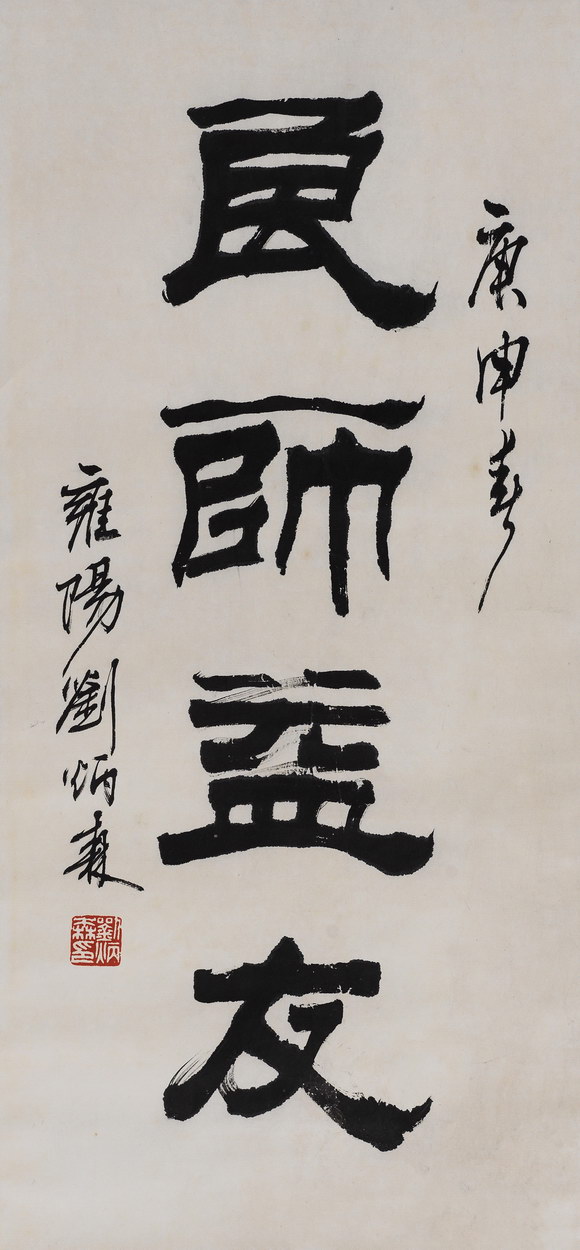 庚申春
良師益友
雍陽劉炳森
劉炳森印